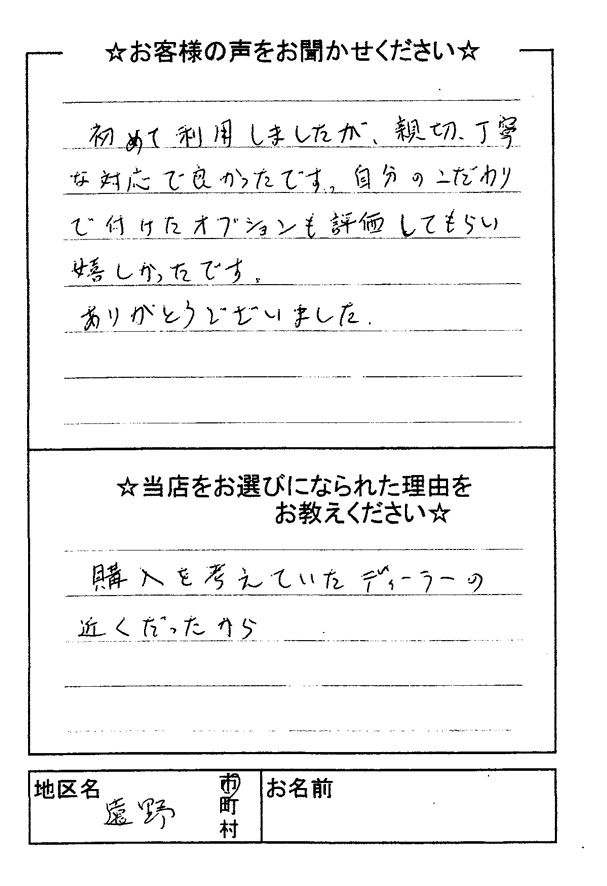 ☆お客様の声をお聞かせください☆
初めて利用しましたが、親切、丁寧
な対応で良かったです。自分のこだわり
で付けたオプションも評価してもらい
嬉しかったです。
ありがとうございました.
☆当店をお選びになられた理由を
お教えください☆
購入を考えていたディーラーの
近くだったから
地区名
遠野
市
町
村
お名前